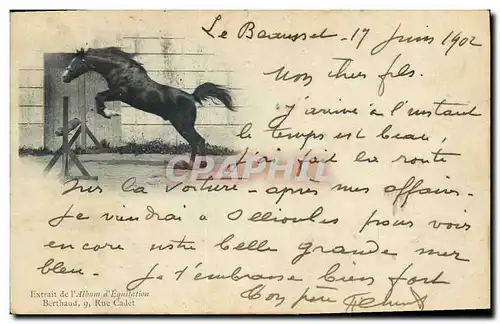 Le Beausset - 17 Juin 1902
Mon cher fils.
j'arrive à l'instant
le temps est beau,
j'ai fait la route
sur la voiture - après mes affaires.
Je viendrai à Ollioules pour voir
encore notre belle grande mer
bleu. - Je t'embrasse bien fort
Ton père
CPAPHIL
Extrait de l'Album d'Equitation
Berthaud, 9, Rue Cadet